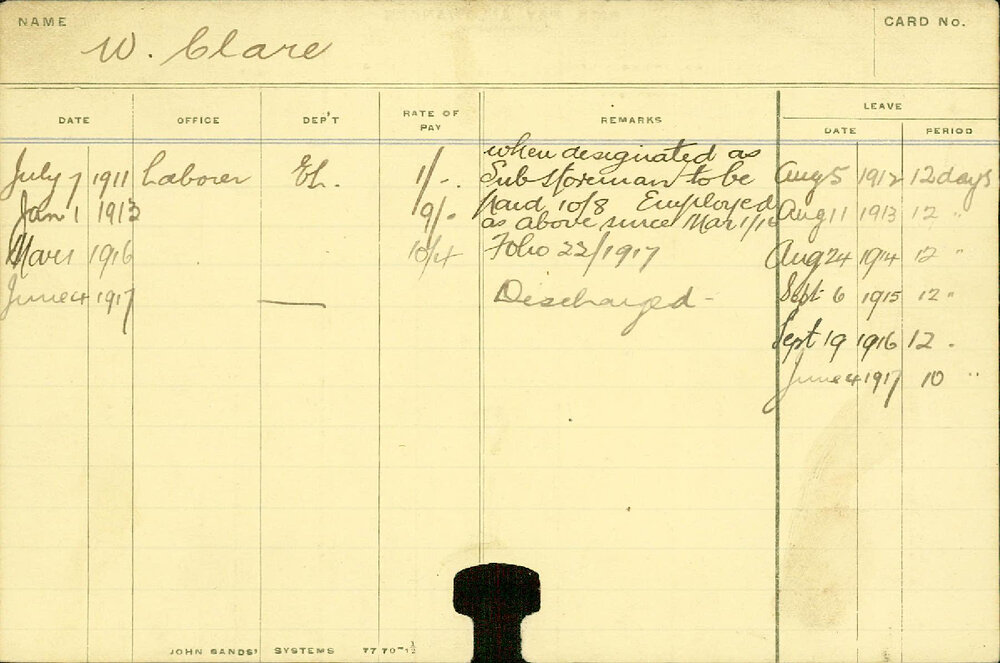 NAME
CARD No.
W. Clare
DATE OFFICE DEP'T RATE OF PAY REMARKS LEAVE
DATE PERIOD
when designated as
July 7 1911 Laborer 1/-. Sub Foreman to be Aug 5 1912 12 days
Jan 1 1913 9/- paid 10/8 Employed Aug 11 1913 12 "
as above since Mar 1/16
Mar 1 1916 10/4 Folio 22/1917 Aug 24 1914 12 "
June 4 1917 — Discharged - Sept 6 1915 12 "
Sept 19 1916 12 .
June 4 1917 10 "
JOHN SANDS' SYSTEMS